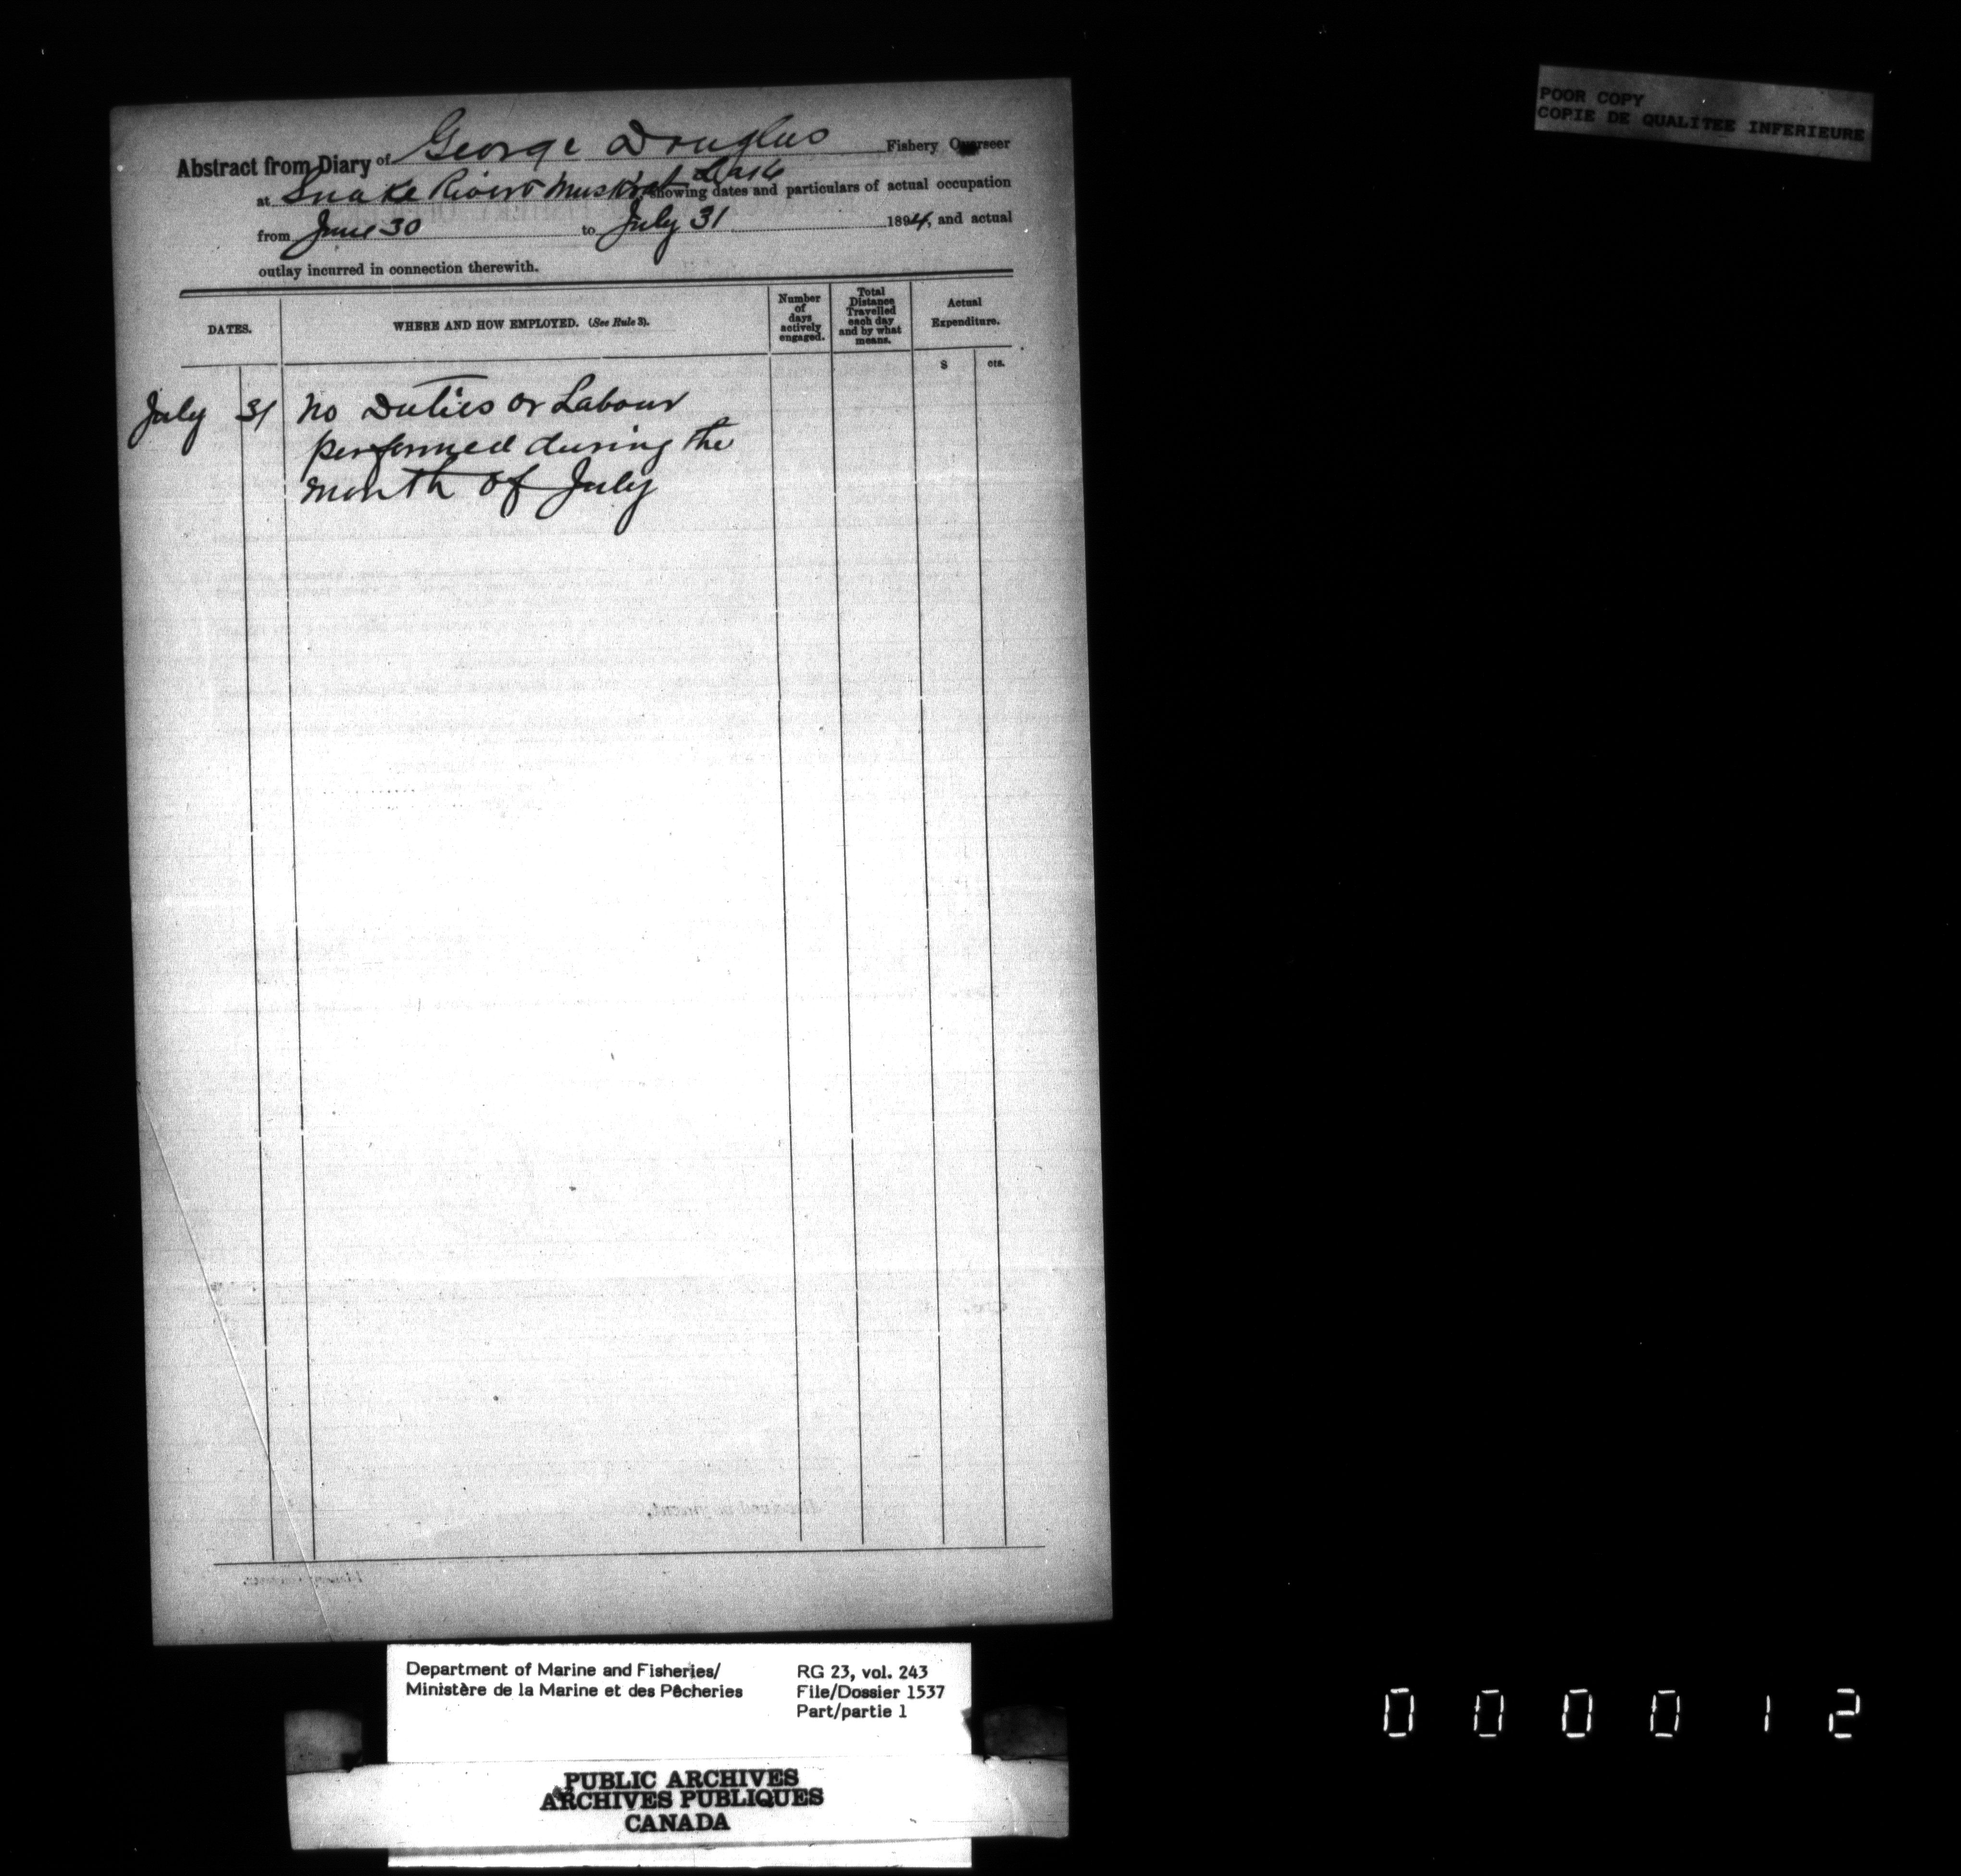 POOR COPY
COPIE DE QUALITEE INFERIEURE
Abstract from Diary of George Douglas Fishery Overseer
at Snake River Muskrat Lake showing dates and particulars of actual occupation
from June 30 to July 31 1894, and actual
outlay incurred in connection therewith.
DATES.
WHERE AND HOW EMPLOYED. (See Rule 3).
Number of days actively engaged.
Total Distance Travelled each day and by what means.
Actual Expenditure.
$ cts.
July 31 No Duties or Labour
performed during the
month of July
Department of Marine and Fisheries/
Ministère de la Marine et des Pêcheries
RG 23, vol. 243
File/Dossier 1537
Part/partie 1
PUBLIC ARCHIVES
ARCHIVES PUBLIQUES
CANADA
000012